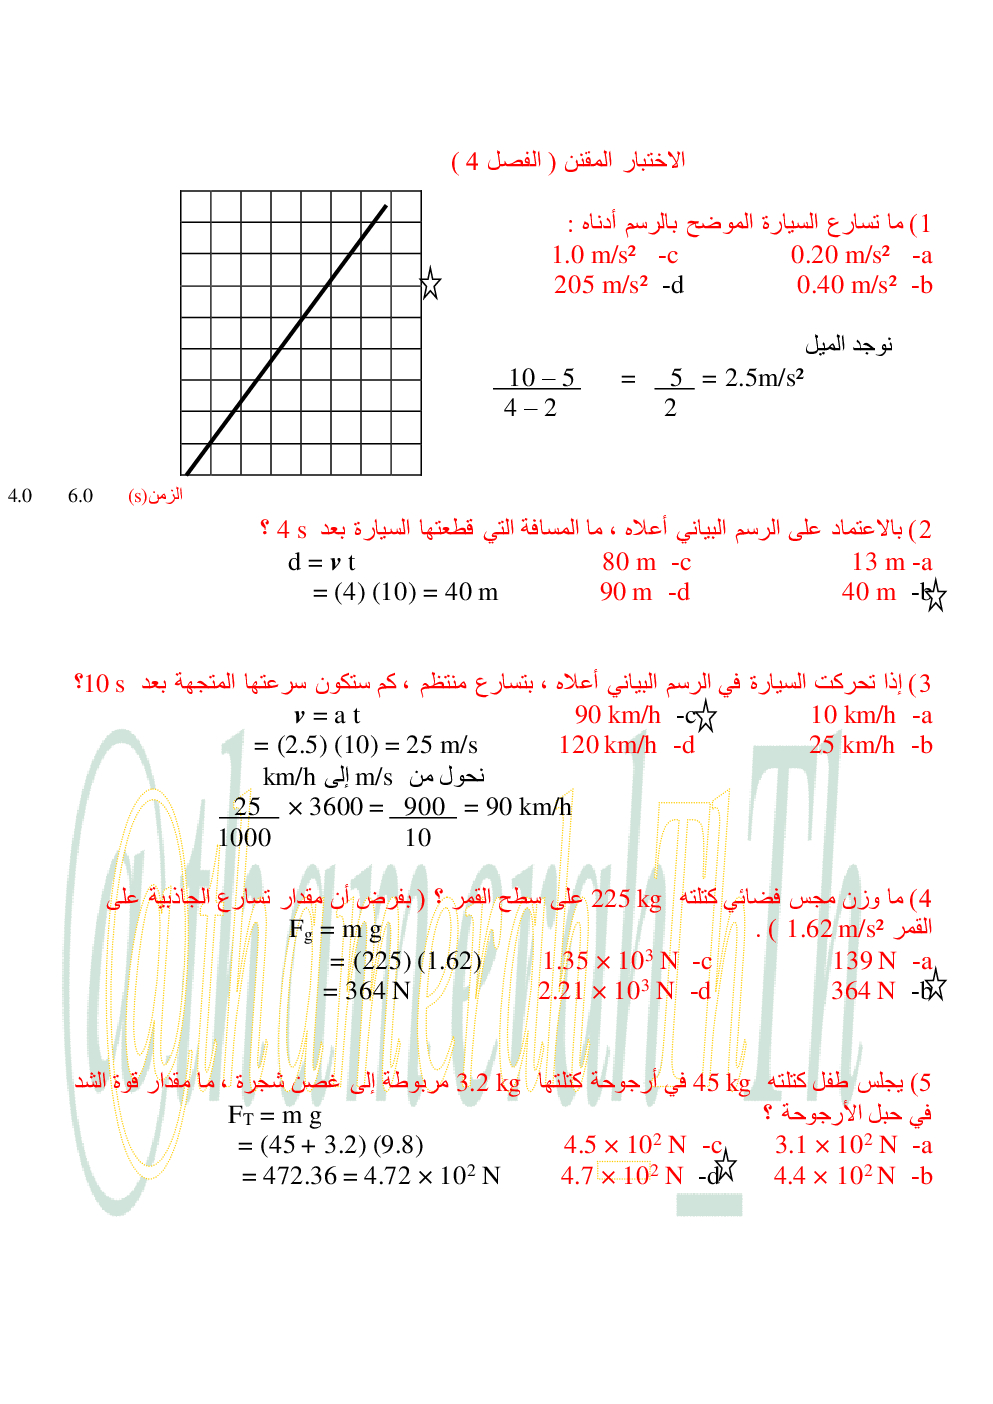 الاختبار المقنن ( الفصل 4 )
1) ما تسارع السيارة الموضح بالرسم أدناه :
a- 0.20 m/s² c- 1.0 m/s²
b- 0.40 m/s² d- 205 m/s²
نوجد الميل
10 – 5 = 5 = 2.5m/s²
4 – 2 2
4.0 6.0 الزمن(s)
2) بالاعتماد على الرسم البياني أعلاه ، ما المسافة التي قطعتها السيارة بعد 4 s ؟
a- 13 m c- 80 m d = v t
b- 40 m d- 90 m = (4) (10) = 40 m
3) إذا تحركت السيارة في الرسم البياني أعلاه ، بتسارع منتظم ، كم ستكون سرعتها المتجهة بعد 10 s؟
a- 10 km/h c- 90 km/h v = a t
b- 25 km/h d- 120 km/h = (2.5) (10) = 25 m/s
نحول من m/s إلى km/h
25 × 3600 = 900 = 90 km/h
1000 10
4) ما وزن مجس فضائي كتلته 225 kg على سطح القمر ؟ ( بفرض أن مقدار تسارع الجاذبية على
القمر 1.62 m/s² ) . Fg = m g
a- 139 N c- 1.35 × 10³ N = (225) (1.62)
b- 364 N d- 2.21 × 10³ N = 364 N
5) يجلس طفل كتلته 45 kg في أرجوحة كتلتها 3.2 kg مربوطة إلى غصن شجرة ، ما مقدار قوة الشد
في حبل الأرجوحة ؟ FT = m g
a- 3.1 × 10² N c- 4.5 × 10² N = (45 + 3.2) (9.8)
b- 4.4 × 10² N d- 4.7 × 10² N = 472.36 = 4.72 × 10² N
@thamerah_Th